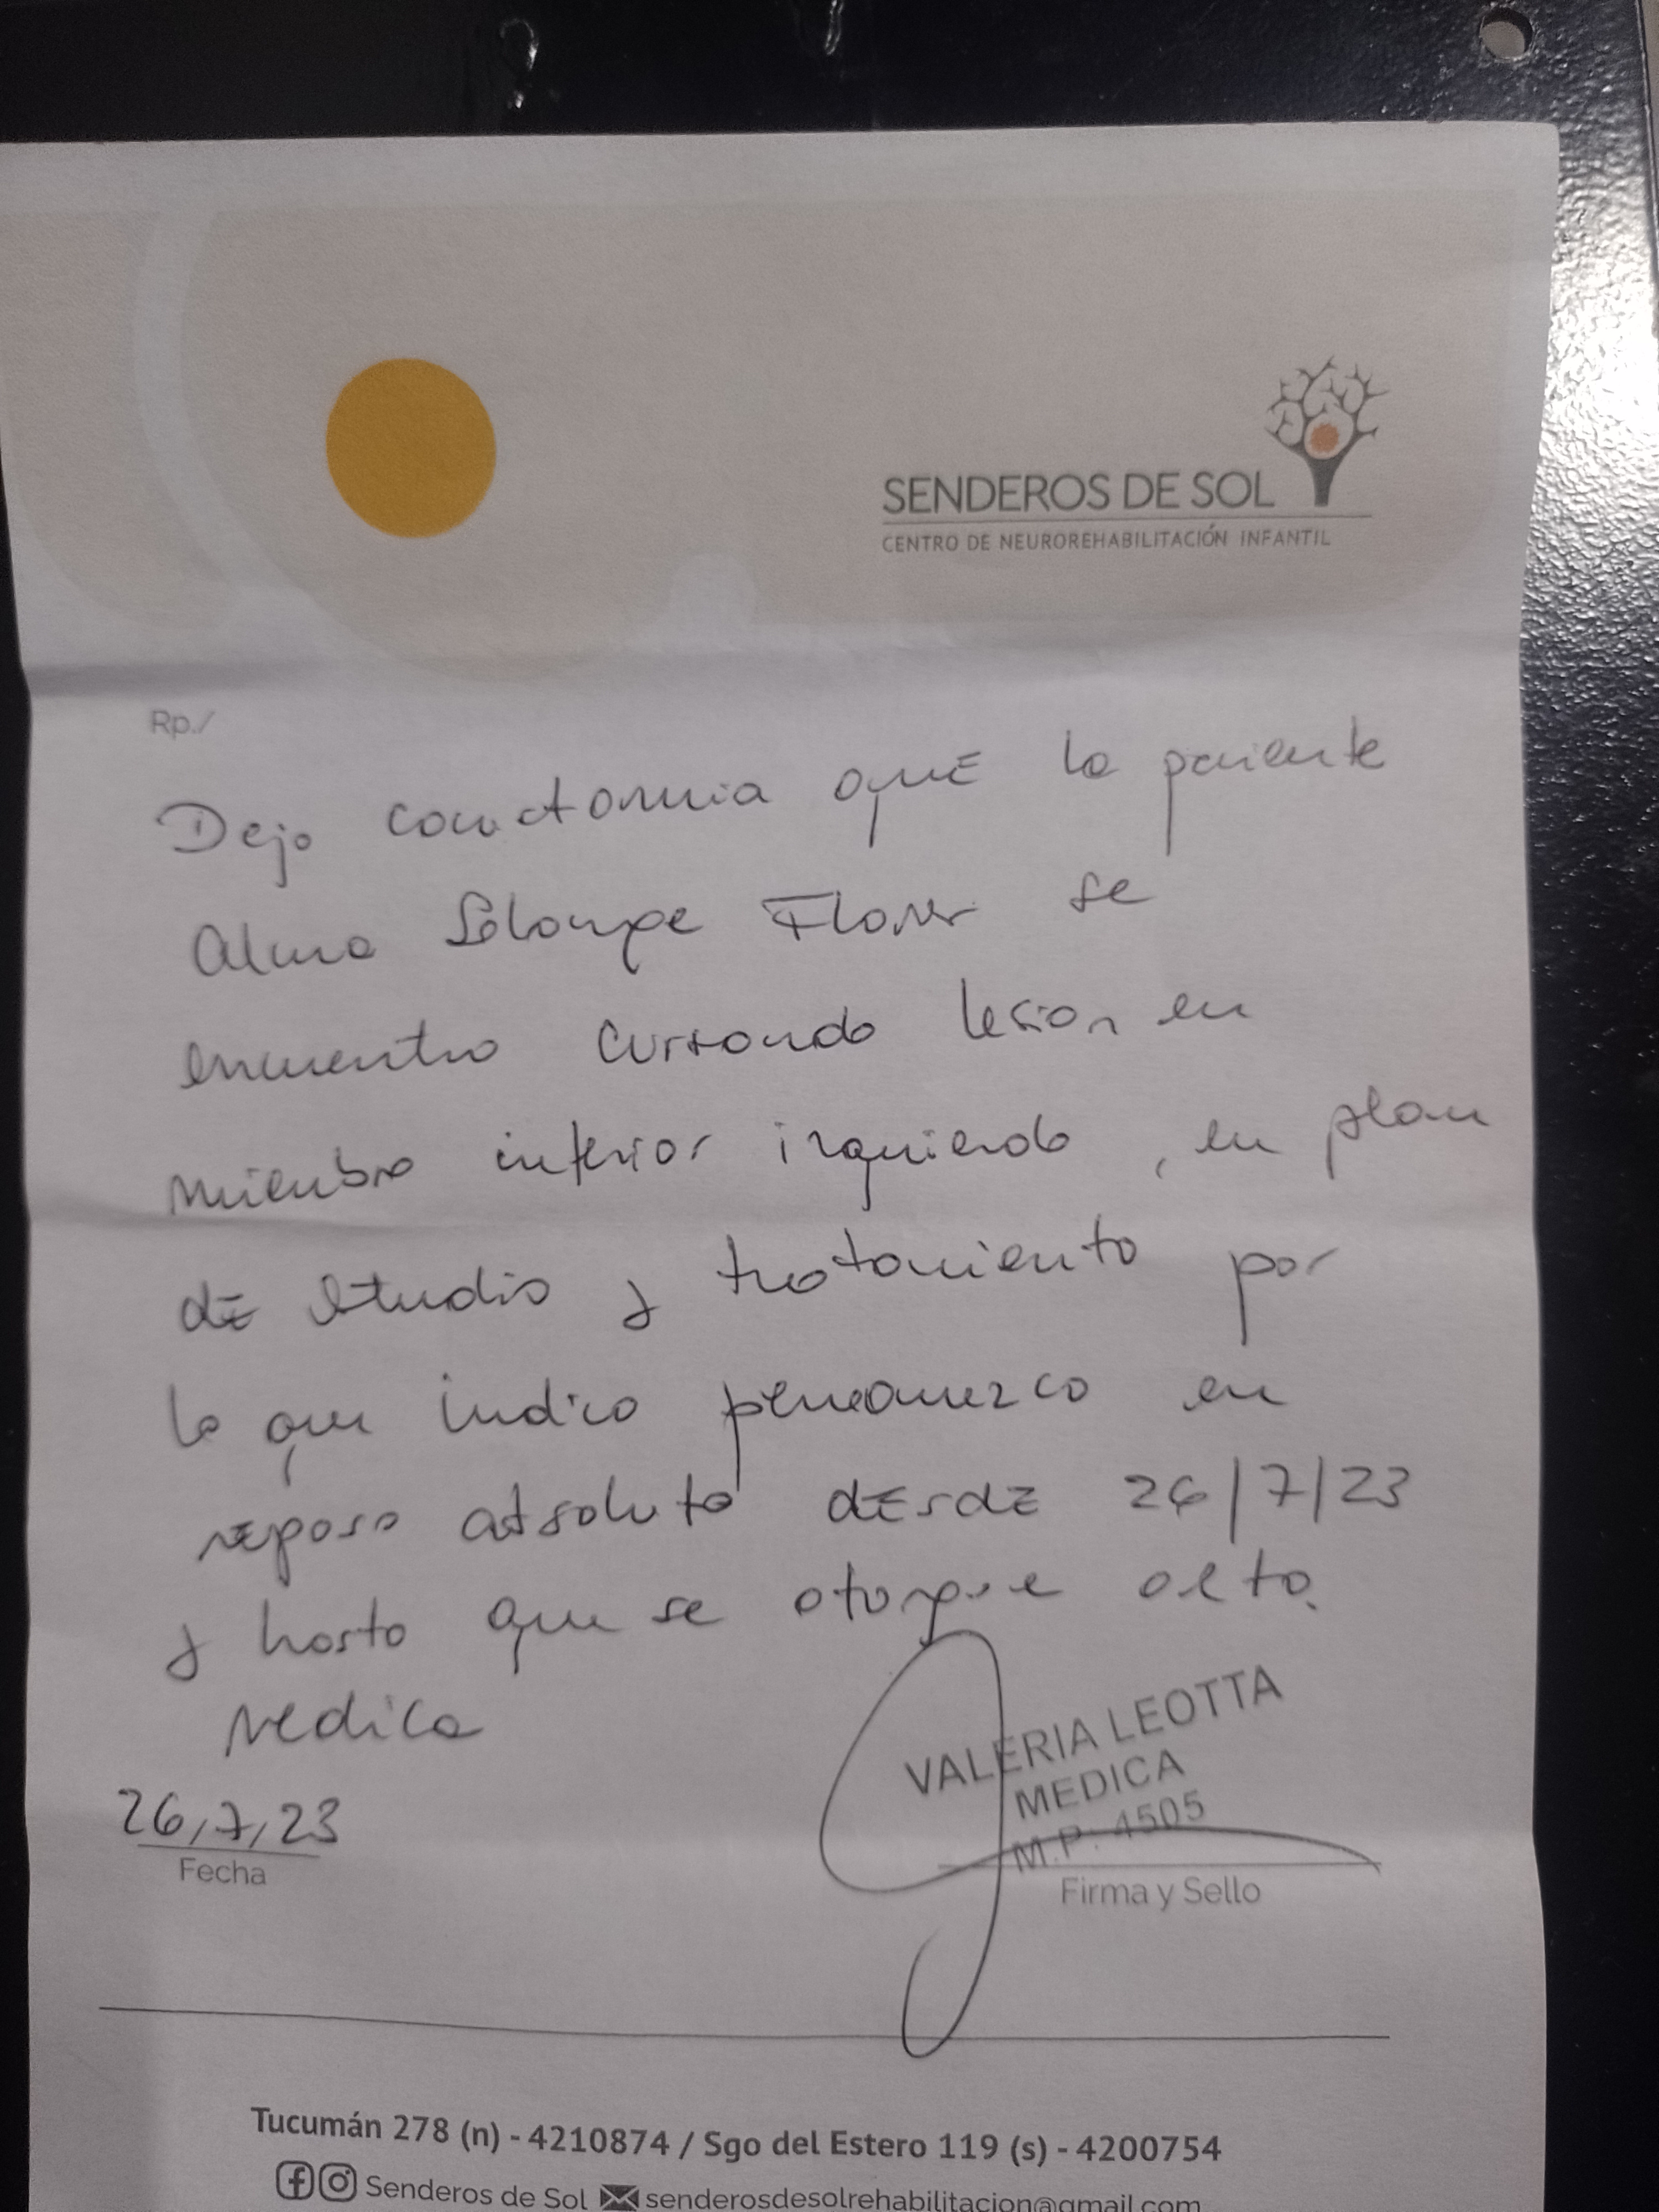 SENDEROS DE SOL
CENTRO DE NEUROREHABILITACIÓN INFANTIL
Rp./
Dejo constancia que la paciente
Alma Flores se
encuentra cursando lesion en
miembro inferior izquierdo, en plan
de estudio y tratamiento por
lo que indico permanezca en
reposo absoluto desde 26/7/23
y hasta que se otorgue alta
Medica
26/7/23
Fecha
VALERIA LEOTTA
MEDICA
M.P. 4505
Firma y Sello
Tucumán 278 (n) - 4210874 / Sgo del Estero 119 (s) - 4200754
Senderos de Sol senderosdesolrehabilitacion@gmail.com